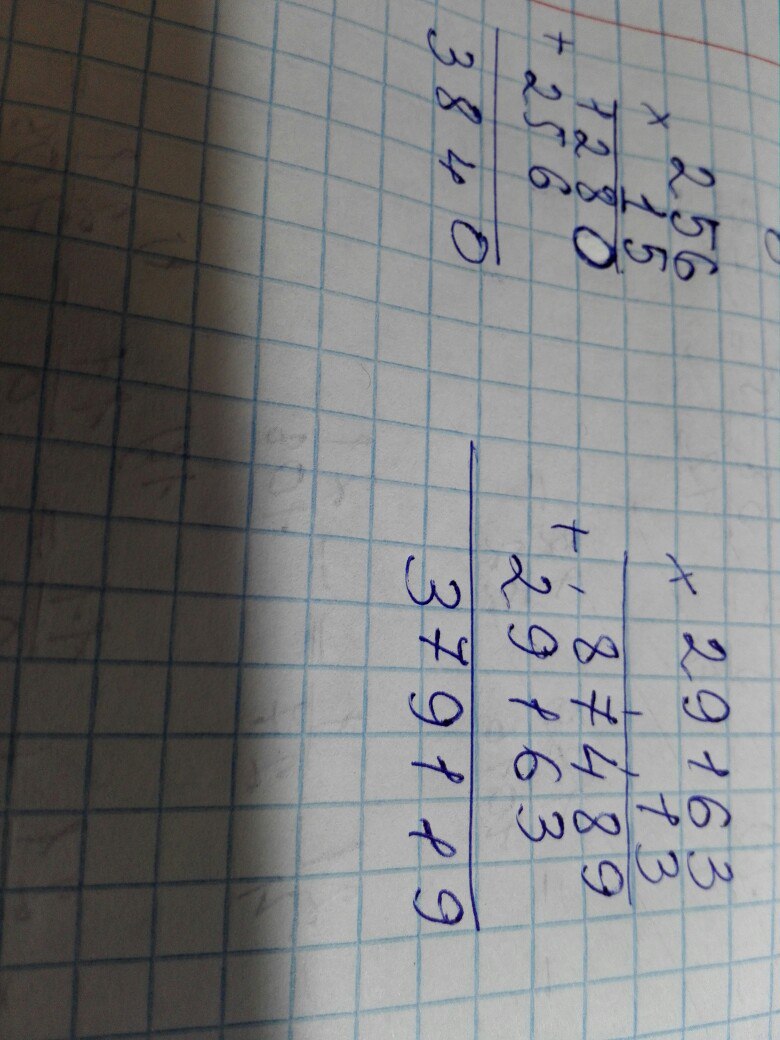 × 256
15
1280
+ 256
3840
× 29163
13
87489
+ 29163
379119